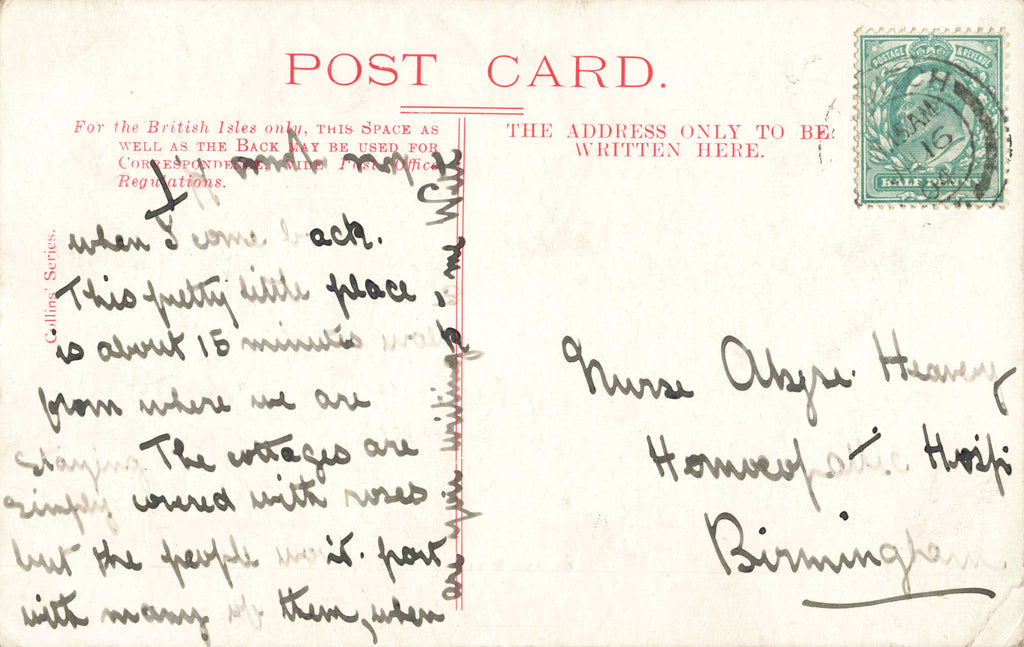 POST CARD.
For the British Isles only, THIS SPACE AS
WELL AS THE BACK MAY BE USED FOR
CORRESPONDENCE, VIDE Post Office
Regulations.
THE ADDRESS ONLY TO BE
WRITTEN HERE.
Collins' Series.
POSTAGE & REVENUE
HALF PENNY
16
when I come back.
This pretty little place
is about 15 minutes walk
from where we are
staying The cottages are
simply covered with roses
but the people won't part
with many of them, when
are you writing me
Nurse
Homoeopathic Hospi
Birmingham